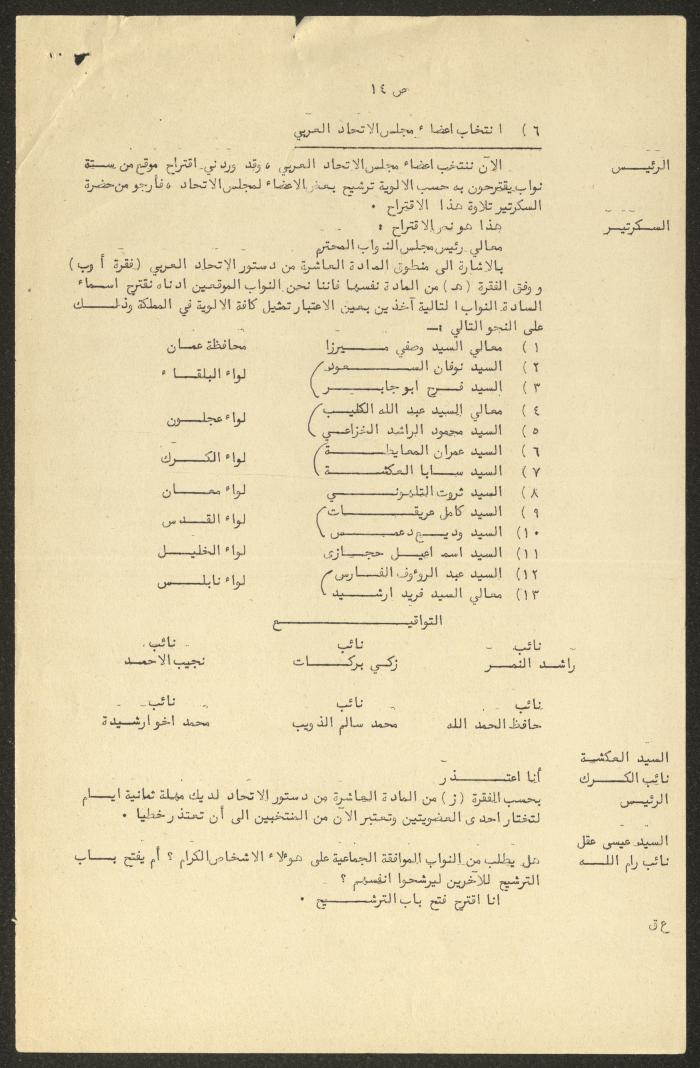 ١٠
ص ١٤
٦ ) انتخاب اعضاء مجلس الاتحاد العربي
الرئيـــس الآن ننتخب اعضاء مجلس الاتحاد العربي ، وقد وردني اقتراح موقع من ستة
نواب يقترحون به حسب الالوية ترشيح بعض الاعضاء لمجلس الاتحاد ، فأرجو من حضرة
السكرتير تلاوة هذا الاقتراح .
السكرتيـر هذا هو نص الاقتراح :
معالي رئيس مجلس النواب المحترم
بالاشارة الى منطوق المادة العاشرة من دستور الاتحاد العربي ( فقرة أ وب )
و وفق الفقرة ( هـ ) من المادة نفسها فاننا نحن النواب الموقعين ادناه نقترح اسماء
السادة النواب التالية آخذين بعين الاعتبار تمثيل كافة الالوية في المملكة وذلــك
على النحو التالي :ـ
١ ) معالي السيد وصفي مــيرزا محافظة عمـان
٢ ) السيد نوفان الســـعود
لواء البلقـــاء
٣ ) السيد فــرح ابو جابـــر
٤ ) معالي السيد عبد الله الكليـب
لواء عجلــون
٥ ) السيد محمود الراشد الخزاعـي
٦ ) السيد عمران المعايطـــة
لواء الكــرك
٧ ) السيد سـابا العكشـــة
٨ ) السيد ثروت التلهونــي لواء معــان
٩ ) السيد كامل عريقـــات
لواء القــدس
١٠) السيد وديــع دعمــس
١١) السيد اسماعيــل حجــازى لواء الخليــل
١٢) السيد عبد الرؤوف الفـارس
لواء نابلــس
١٣) معالي السيد فريد ارشــيد
التواقيـــــع
نائب نائب نائب
راشد النمـر زكـي بركــات نجيب الاحمـد
نائب نائب نائب
حافظ الحمد الله محمد سالم الذويب محمد اخو ارشيدة
السيد العكشـة
نائب الكــرك أنا اعتــــذر
الرئيس بحسب الفقرة ( ز ) من المادة العاشرة من دستور الاتحاد لديك مهلة ثمانية ايــام
لتختار احدى العضويتين وتعتبر الآن من المنتخبين الى أن تعتذر خطيا .
السيد عيسى عقل
نائب رام اللــه هل يطلب من النواب الموافقة الجماعية على هؤلاء الاشخاص الكرام ؟ أم يفتح بــاب
الترشيح للآخرين ليرشحوا انفسهم ؟
انا اقترح فتح باب الترشـــيح .
ع ق